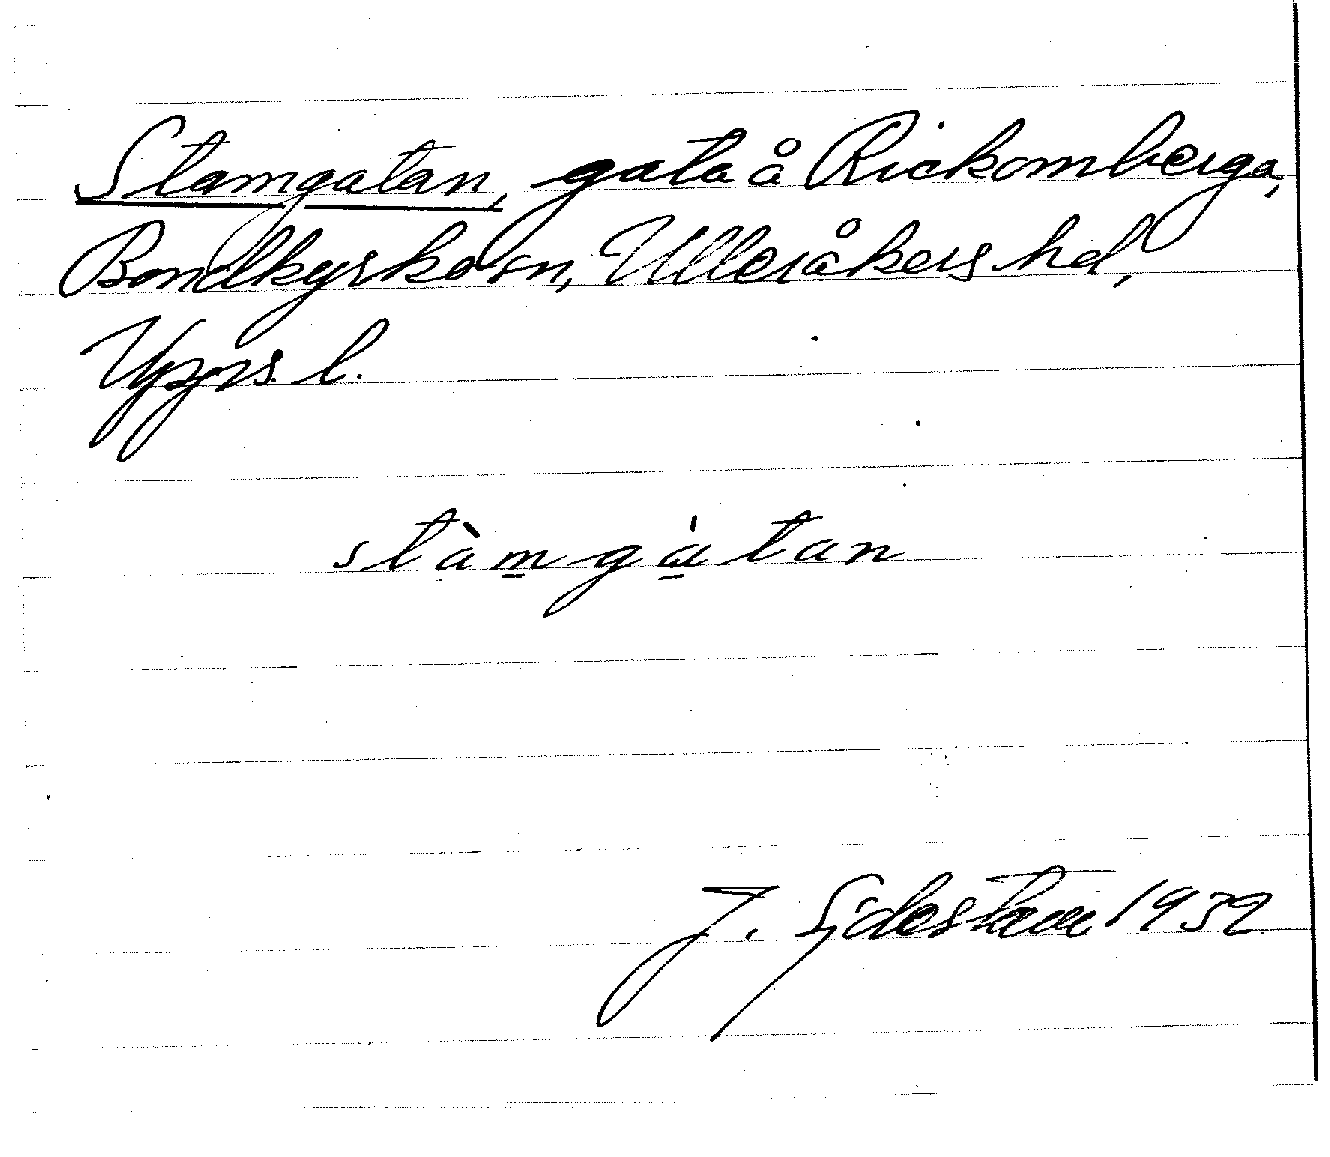 Stamgatan, gata å Rickomberga,
Bondkyrko sn, Ulleråkers hd,
Upps. l.
stàmgàtan
J. 1932